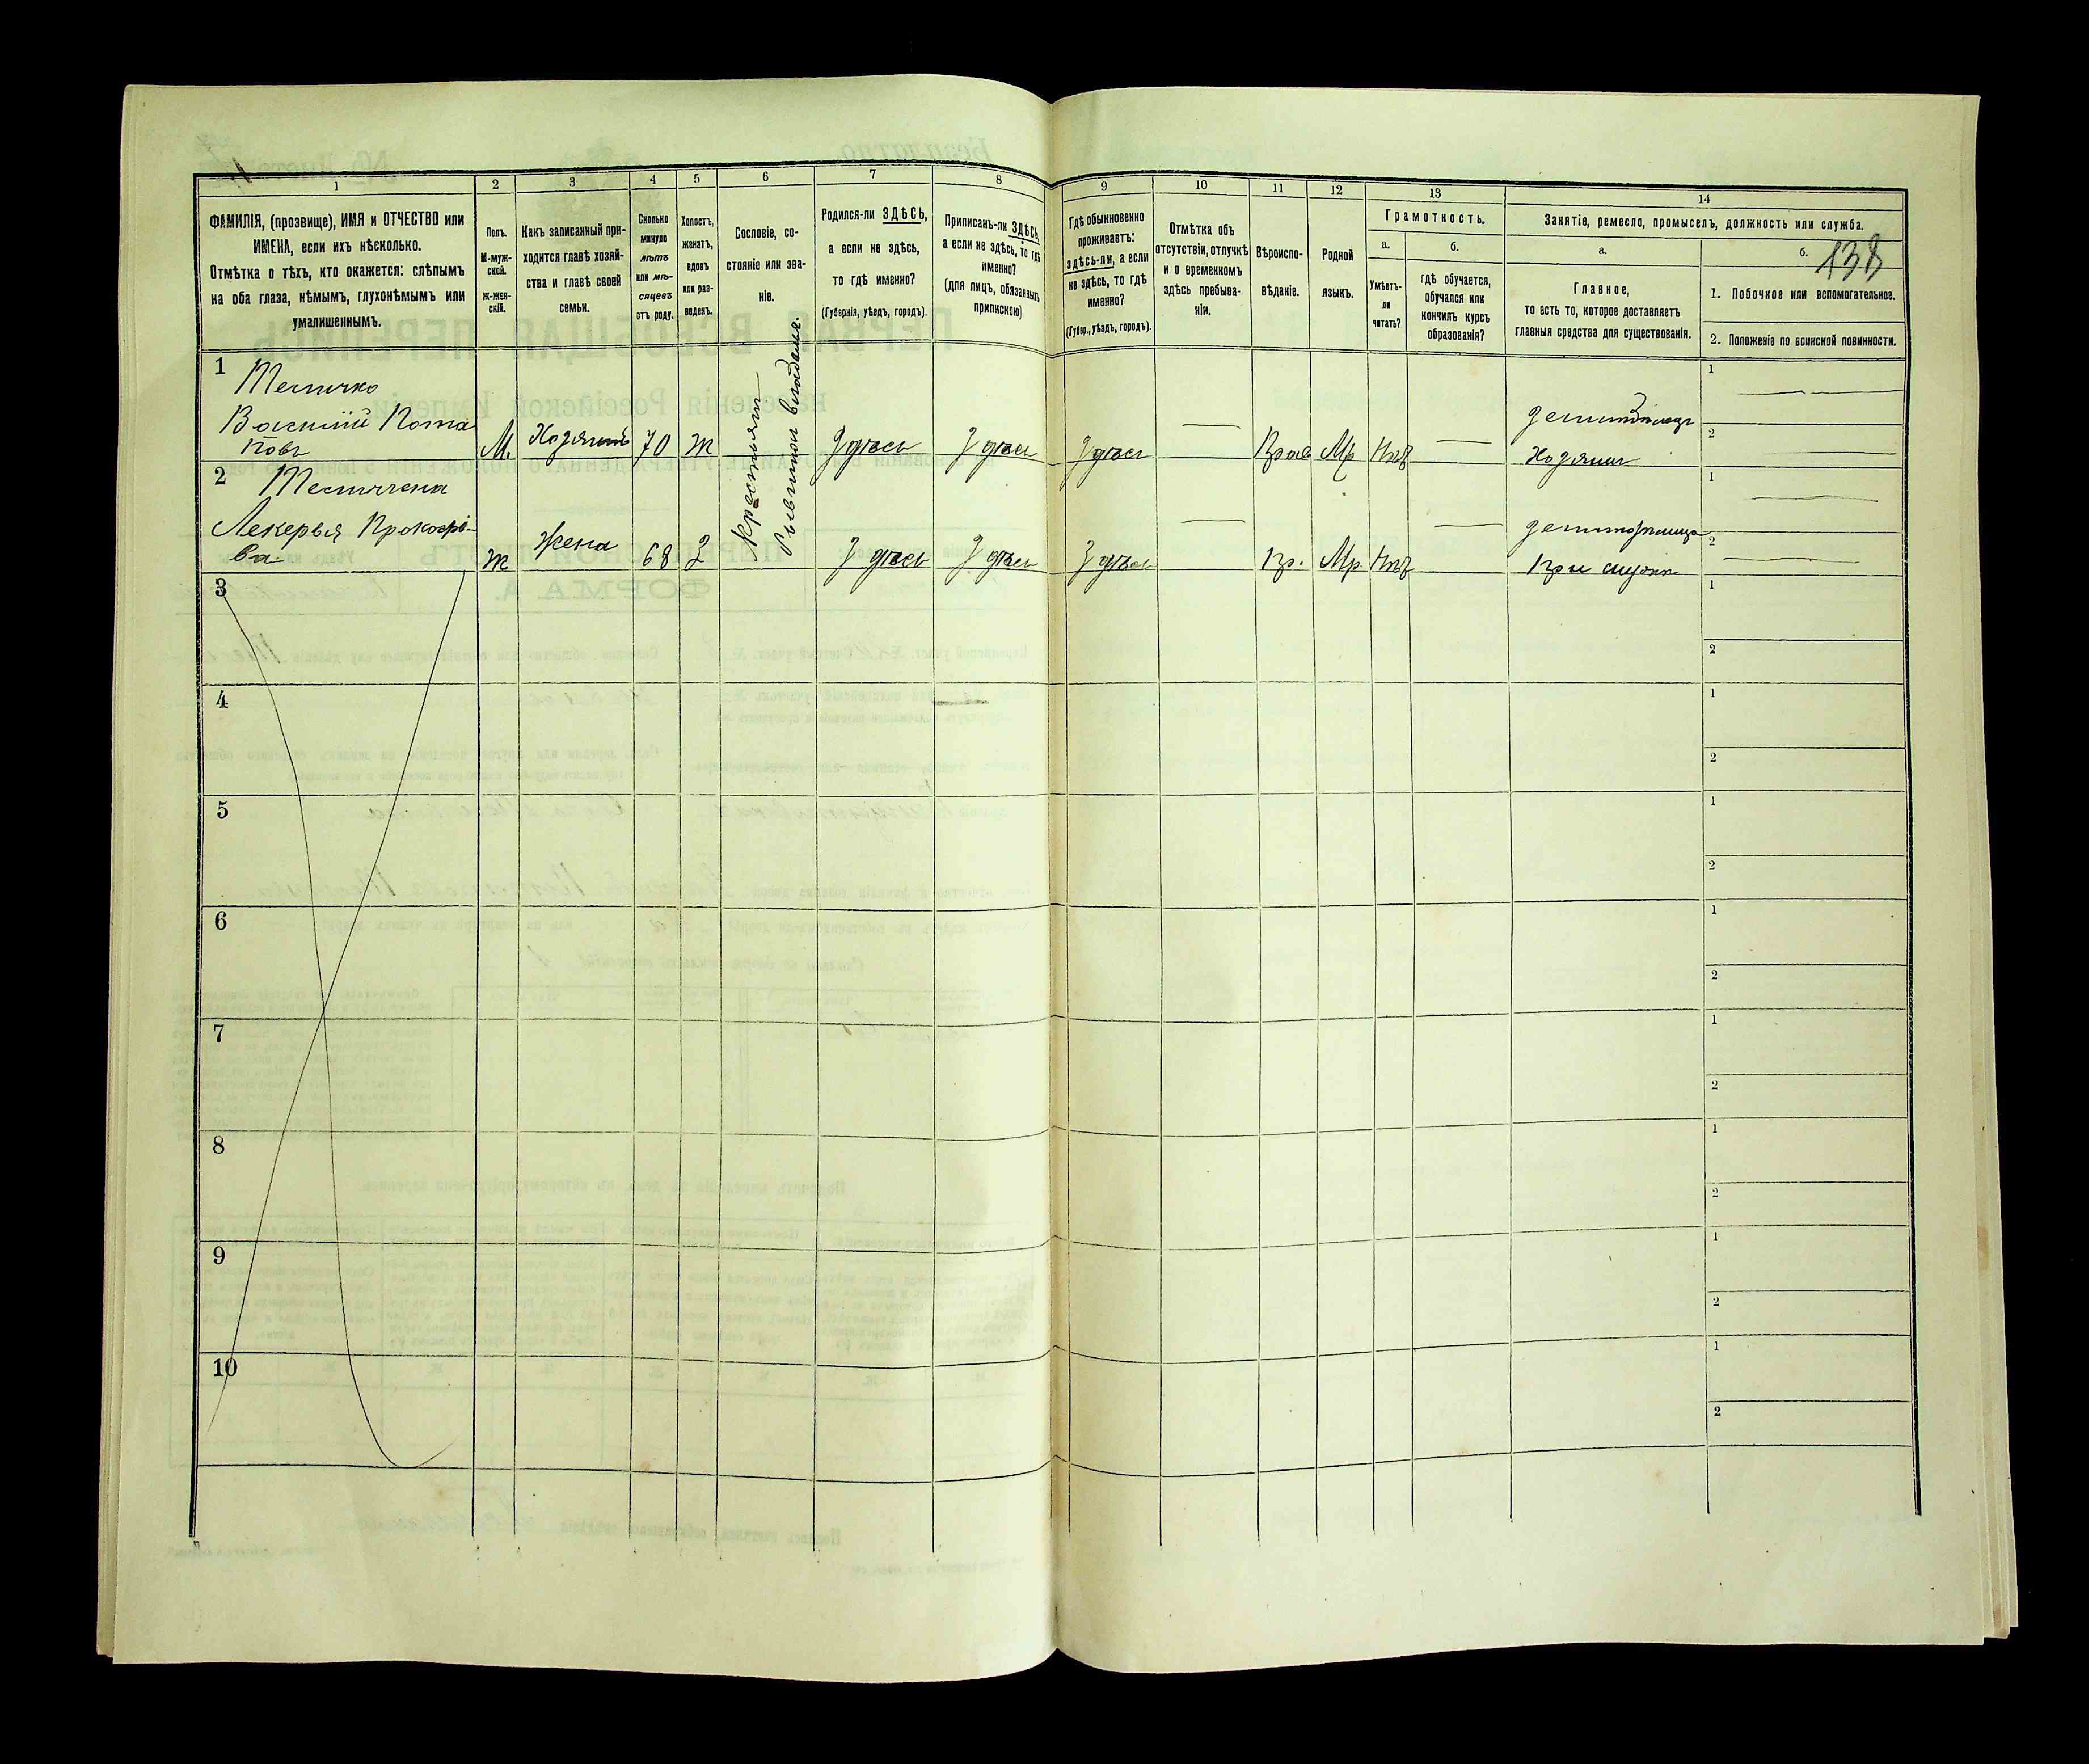 138
1 2 3 4 5 6 7 8 9 10 11 12 13 14
ФАМИЛІЯ, (прозвище), ИМЯ и ОТЧЕСТВО или
ИМЕНА, если ихъ нѣсколько.
Отмѣтка о тѣхъ, кто окажется: слѣпымъ
на оба глаза, нѣмымъ, глухонѣмымъ или
умалишеннымъ.
Полъ.
М-муж-
ской.
Ж-жен-
скій.
Какъ записанный при-
ходится главѣ хозяй-
ства и главѣ своей
семьи.
Сколько
минуло
лѣтъ
или мѣ-
сяцевъ
отъ роду.
Холостъ,
женатъ,
вдовъ
или раз-
веденъ.
Сословіе, со-
стояніе или зва-
ніе.
Родился-ли ЗДѢСЬ,
а если не здѣсь,
то гдѣ именно?
(Губернія, уѣздъ, городъ).
Приписанъ-ли ЗДѢСЬ,
а если не здѣсь, то гдѣ
именно?
(для лицъ, обязанныхъ
припискою)
Гдѣ обыкновенно
проживаетъ:
здѣсь-ли, а если
не здѣсь, то гдѣ
именно?
(Губер., уѣздъ, городъ).
Отмѣтка объ
отсутствіи, отлучкѣ
и о временномъ
здѣсь пребыва-
ніи.
Вѣроиспо-
вѣданіе.
Родной
языкъ.
Грамотность.
а.
Умѣетъ-
ли
читать?
б.
гдѣ обучается,
обучался или
кончилъ курсъ
образованія?
Занятіе, ремесло, промыселъ, должность или служба.
а.
Главное,
то есть то, которое доставляетъ
главныя средства для существованія.
б.
1. Побочное или вспомогательное.
2. Положеніе по воинской повинности.
1
Василій Пота
повъ
М. Хозяинъ 70 ж Здѣсь Здѣсь Здѣсь Мр
Хозяинъ
1
2
крестьянъ
2
Прокофіе
ва
ж жена 68 З Здѣсь Здѣсь Здѣсь Пр. Мр
При мужѣ
1
2
3
1
2
4
1
2
5
1
2
6
1
2
7
1
2
8
1
2
9
1
2
10
1
2